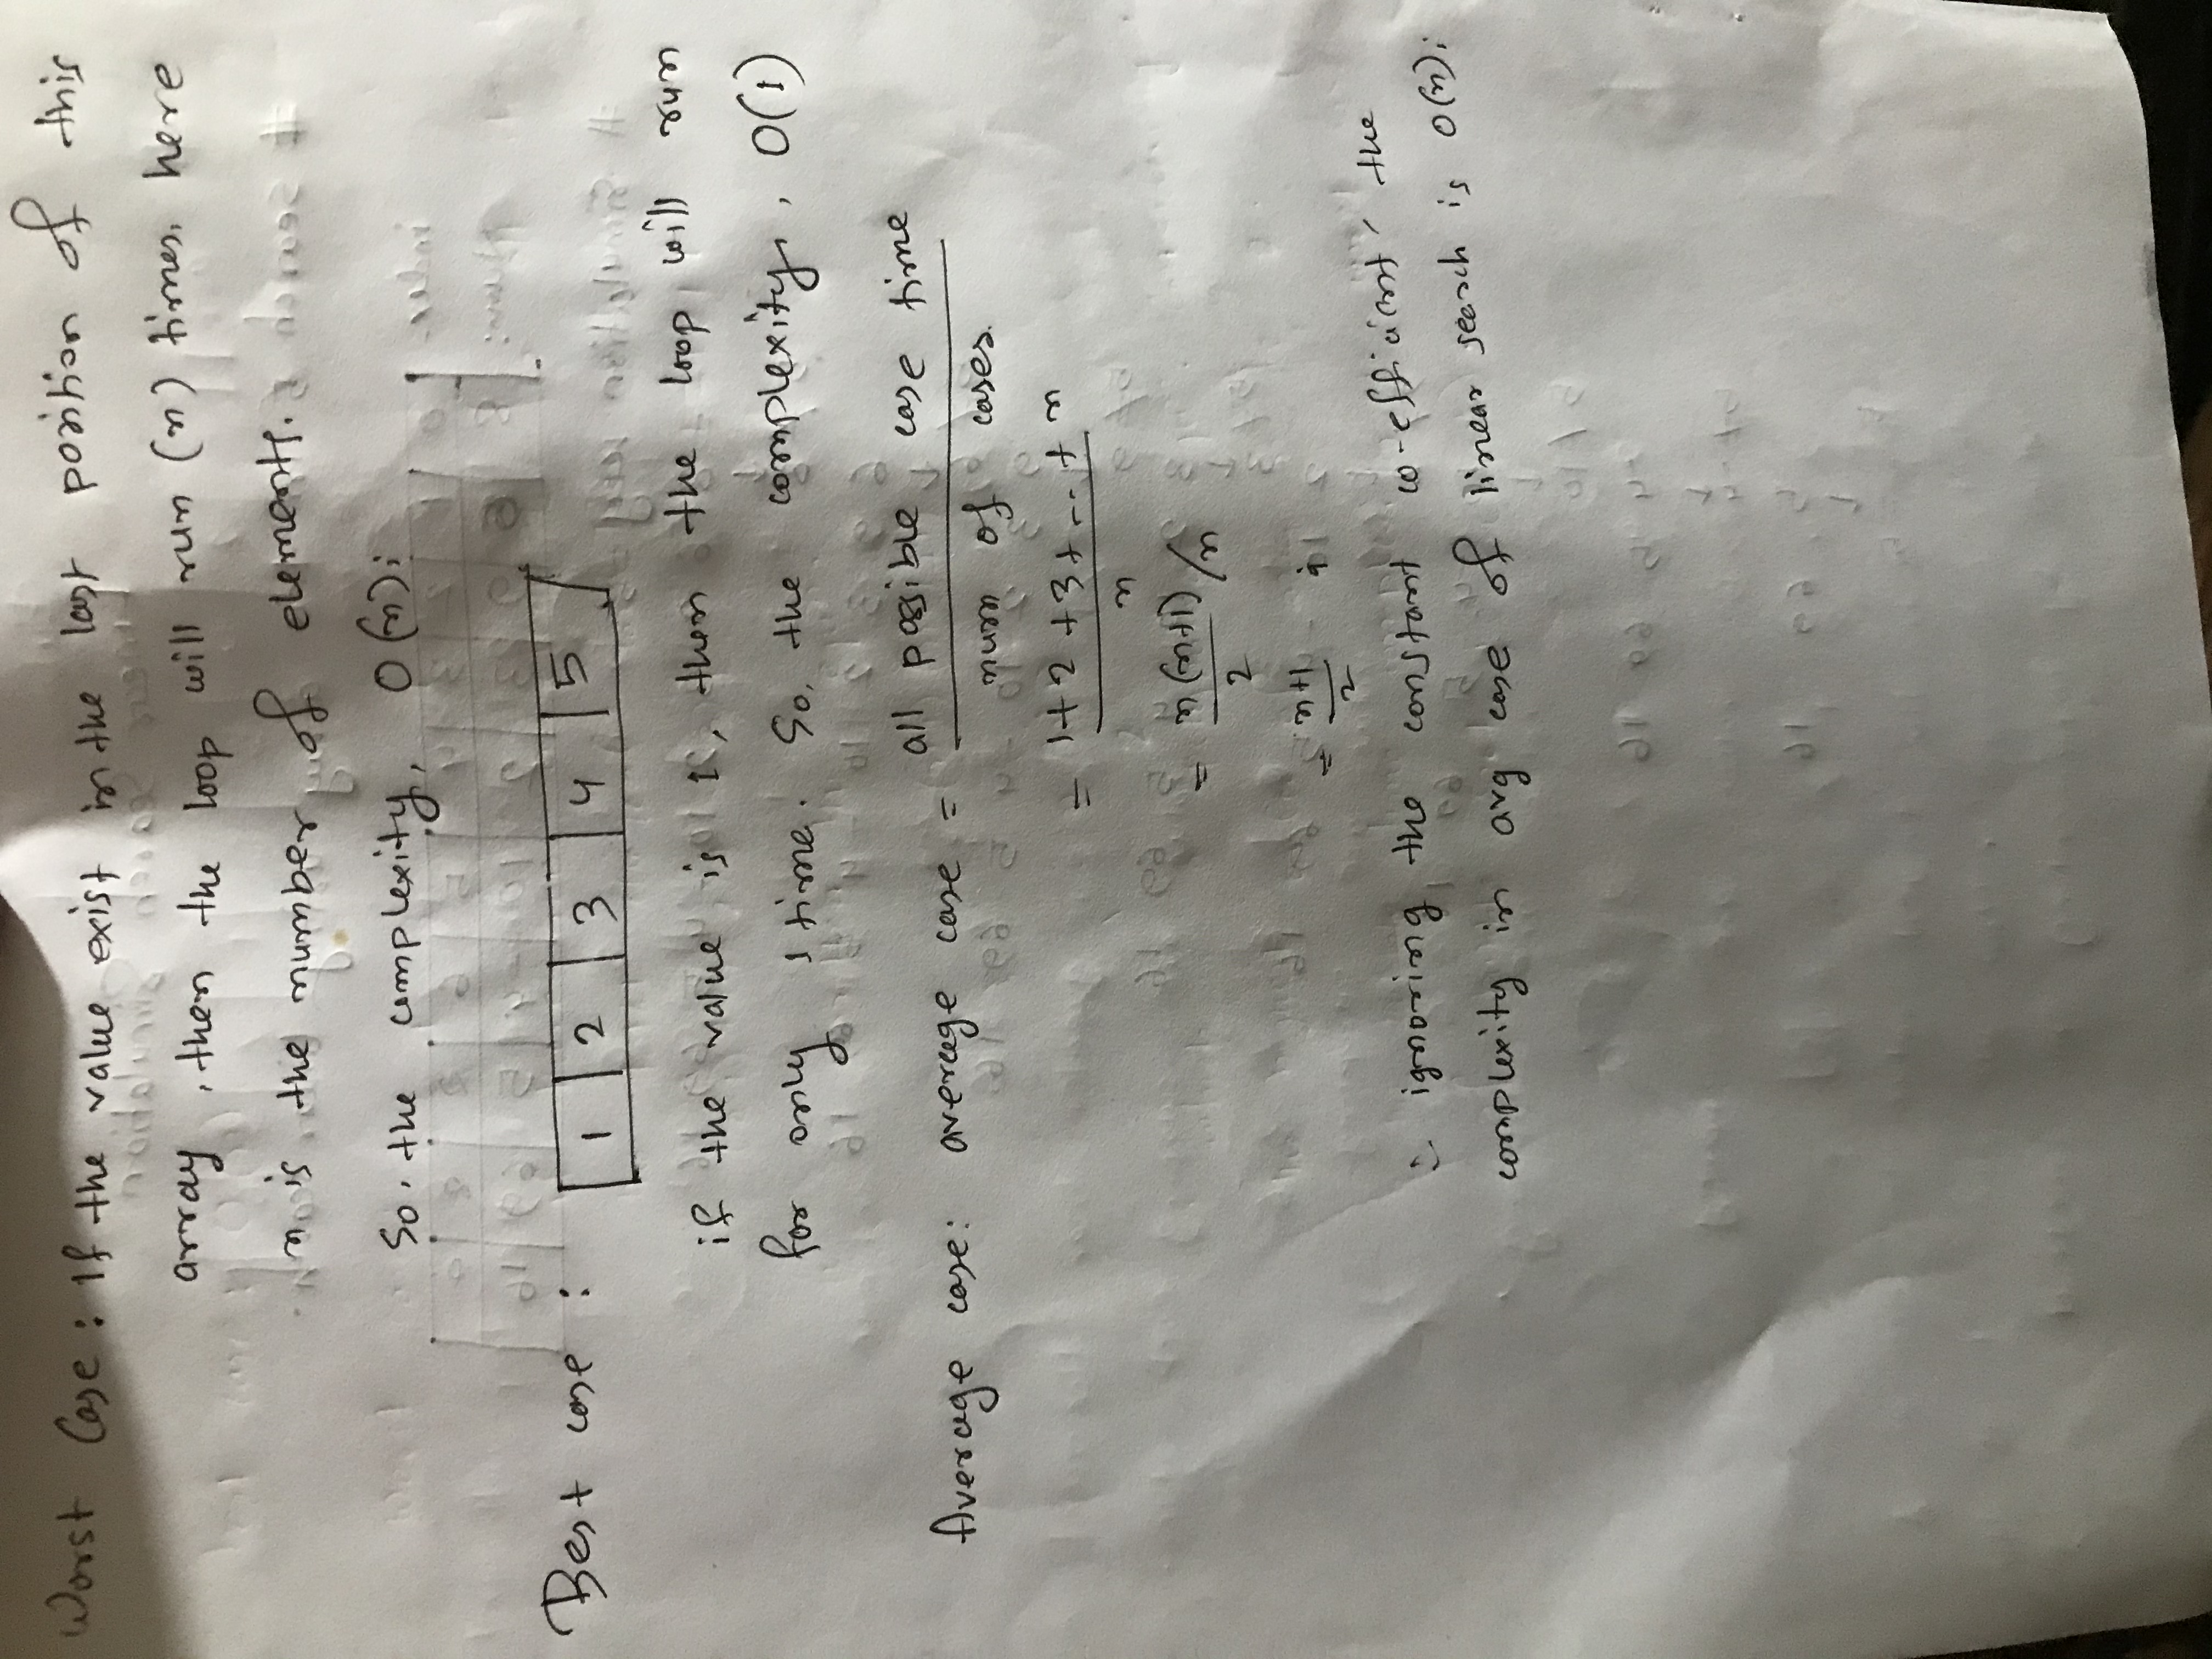 Worst Case : If the value exist in the last position of this
array, then the loop will run (n) times, here
n is the number of elements.
So, the complexity, O(n);
Best case : 1 2 3 4 5
if the value is 1, then the loop will run
for only 1 time. So, the complexity, O(1)
Average case: average case = all possible case time / num of cases.
= 1+2+3+...+n / n
= n(n+1)/2 /n
= n+1/2 ;
∴ ignoring the constant co-efficient, the
complexity in avg case of linear search is O(n);